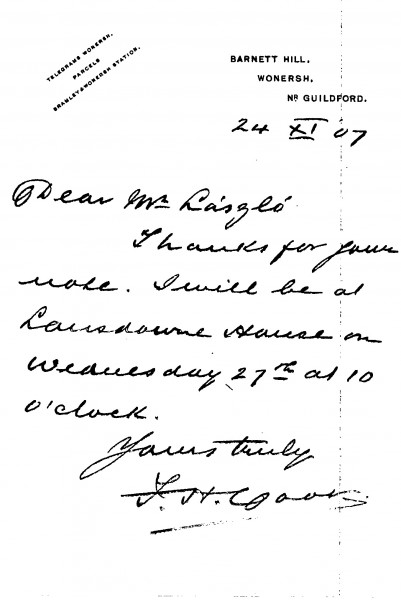 TELEGRAMS WONERSH.
PARCELS
BRAMLEY & WONERSH STATION.
BARNETT HILL,
WONERSH,
NR GUILDFORD.
24 XI 07
Dear Mr László
Thanks for your
note. I will be at
Lansdowne House on
Wednesday 27th at 10
o'clock.
Yours truly
F. H. Cook